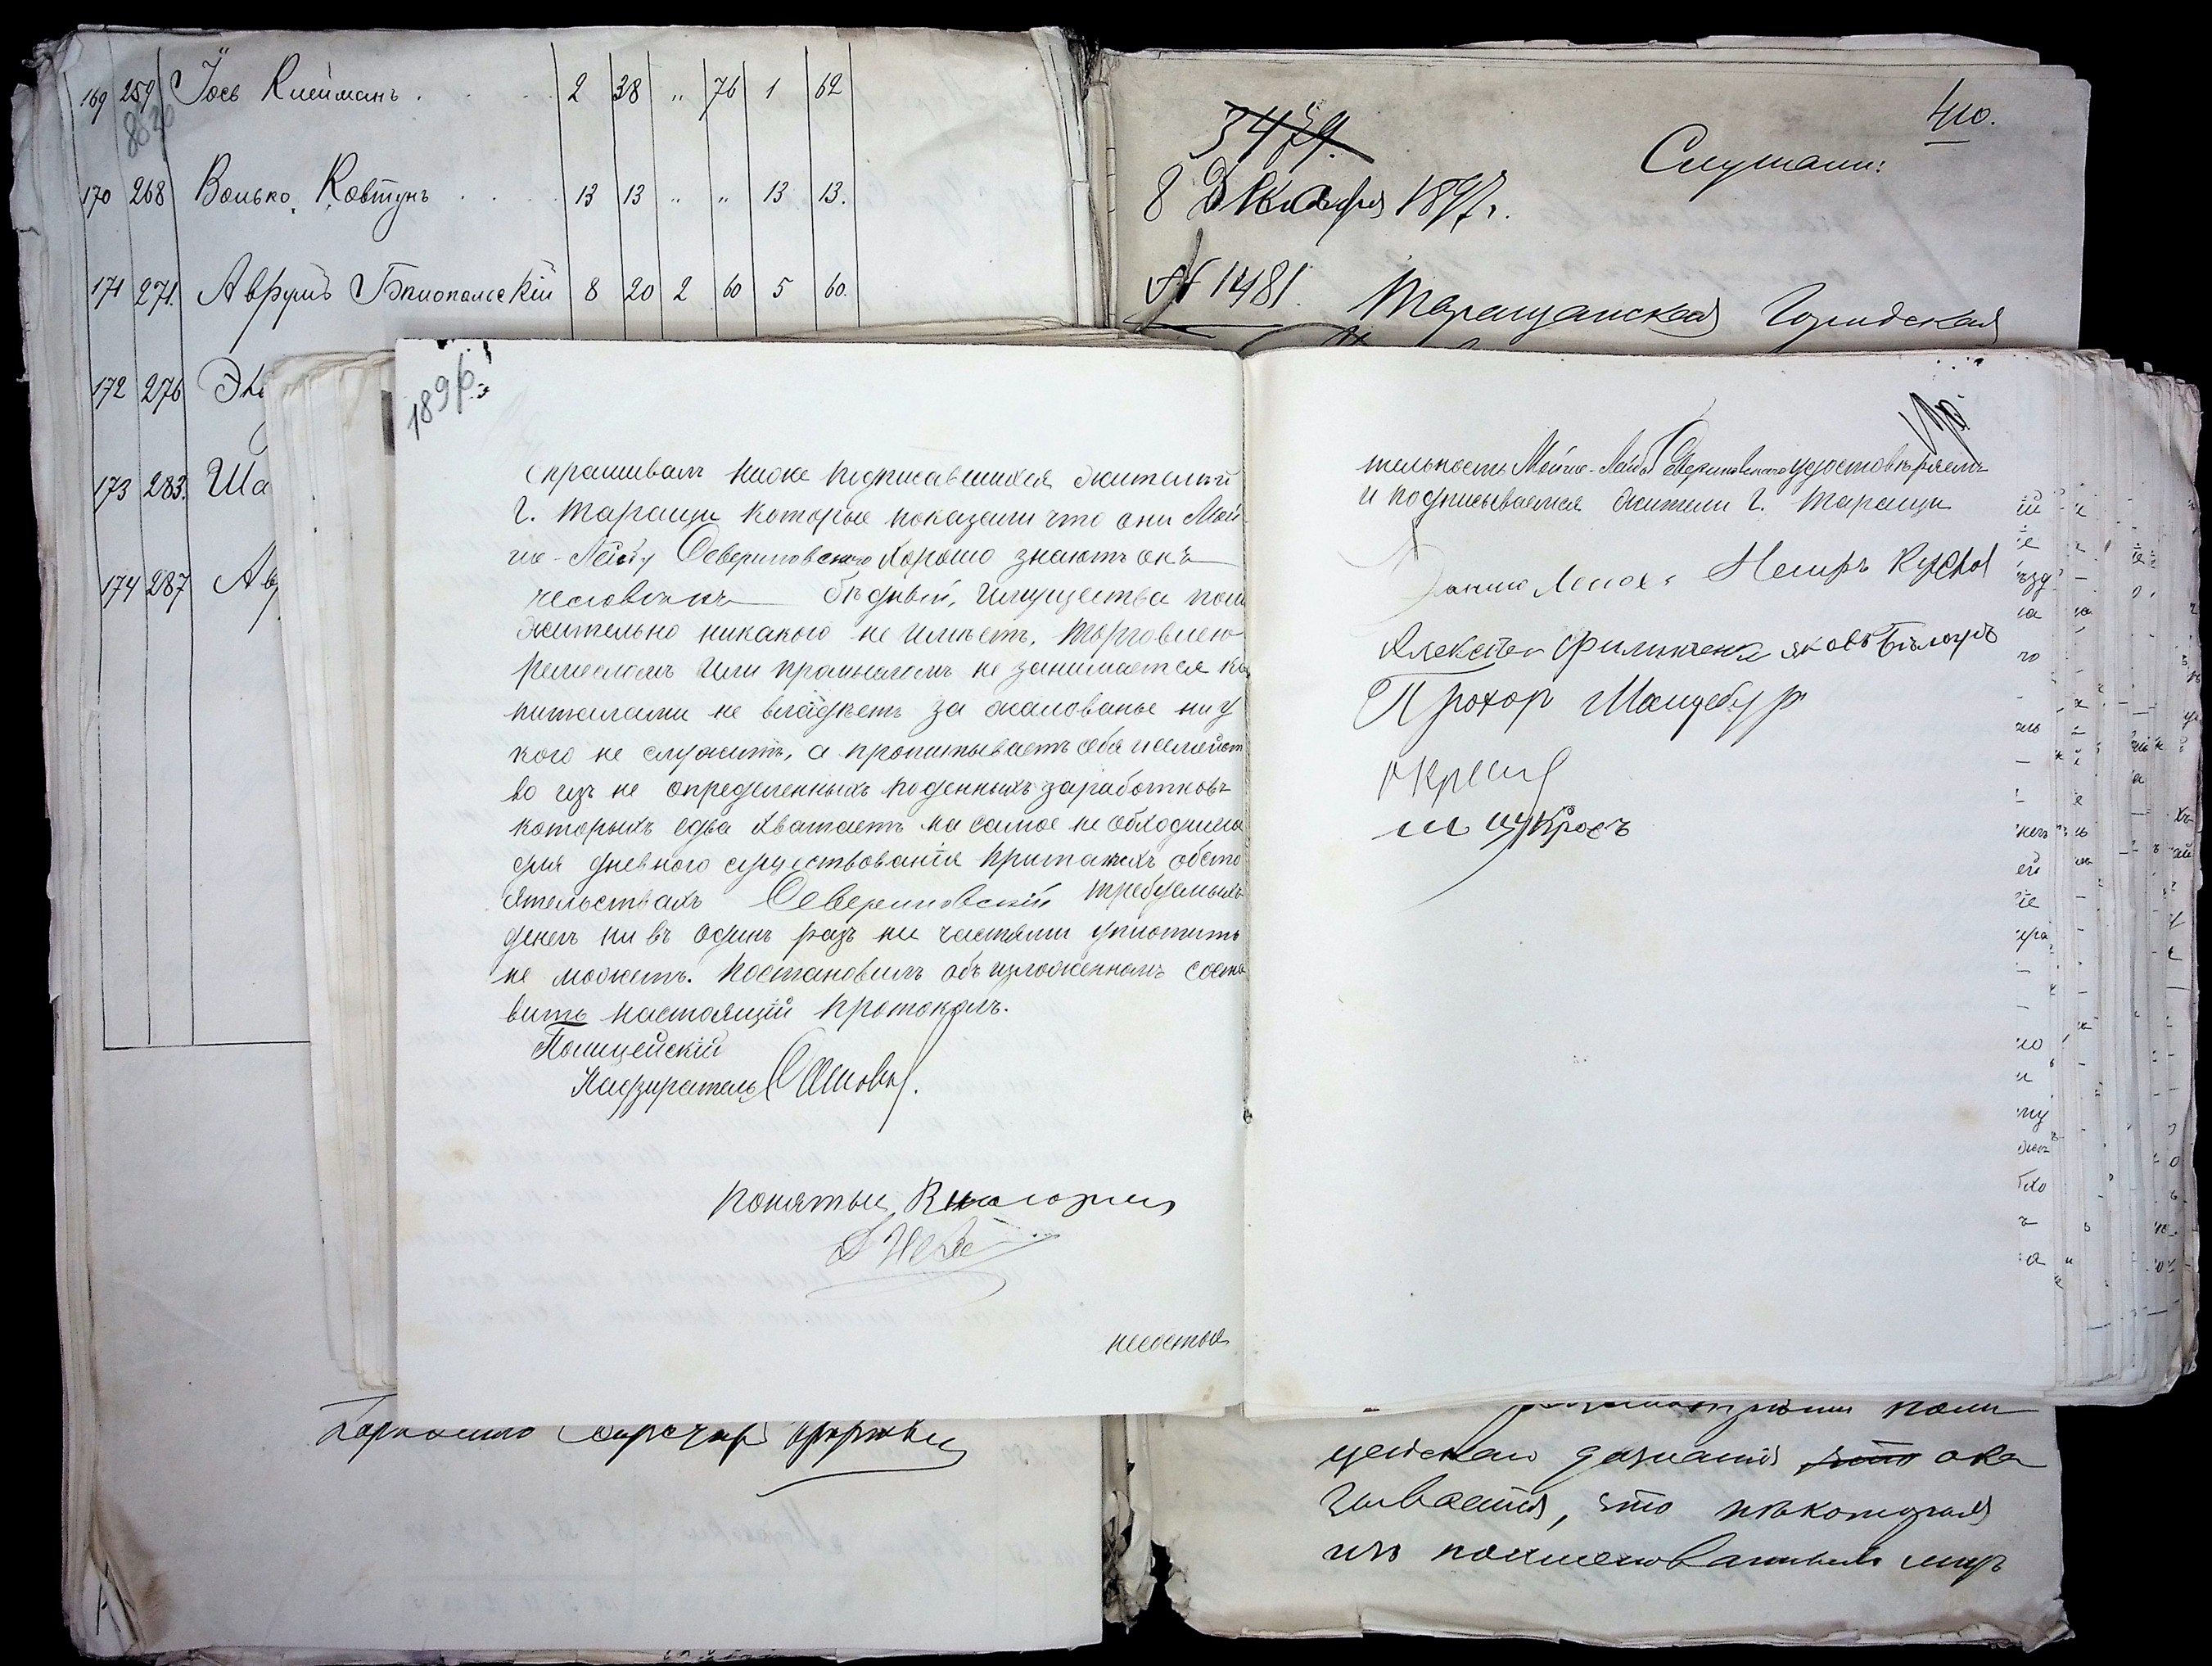 169 259 Іось Клейманъ . . . . 2 38 " 76 1 62
8630
170 268 Волько Ковтунъ . . . 13 13 " " 13 13.
171 271. Аврумъ Бялопольскій 8 20 2 60 5 60.
172 276
173 283. Ша
174 287 Ав
410.
3479.
Слушали:
8 Декабря 1897 г.
№ 1481.
Таращанская Городская
189б.
спрашивалъ ниже подписавшихся жителей
г. Таращи которые показали что они Мой-
ше-Лейбу Севериновскаго хорошо знаютъ онъ
человѣкъ бѣдный, имущества поло
жительно никакого не имѣетъ, торговлею
ремесломъ или промысломъ не занимается ка
питалами не владѣетъ за жалованье ни у
кого не служитъ, а пропитываетъ себя и семейст
во изъ не определенныхъ поденныхъ заработковъ
которыхъ едва хватаетъ на самое не обходимое
для дневного существованія притакихъ обсто
ятельствахъ Севериновскій требуемыхъ
денегъ ни въ одинъ разъ ни частями уплотить
не можетъ. Постановилъ объ изложенномъ соста
вить настоящій протоколъ.
Полицейскій
Надзиратель
Понятые
несостоя
тельность Мойше-Лейбы Севериновскаго удостовѣряемъ
и подписываемся жители г. Таращи
Алексѣй Филипченко Яковъ
Прохор
цейскаго дознанія что ока
зывается, что нѣкоторыя
изъ поименованныхъ лицъ